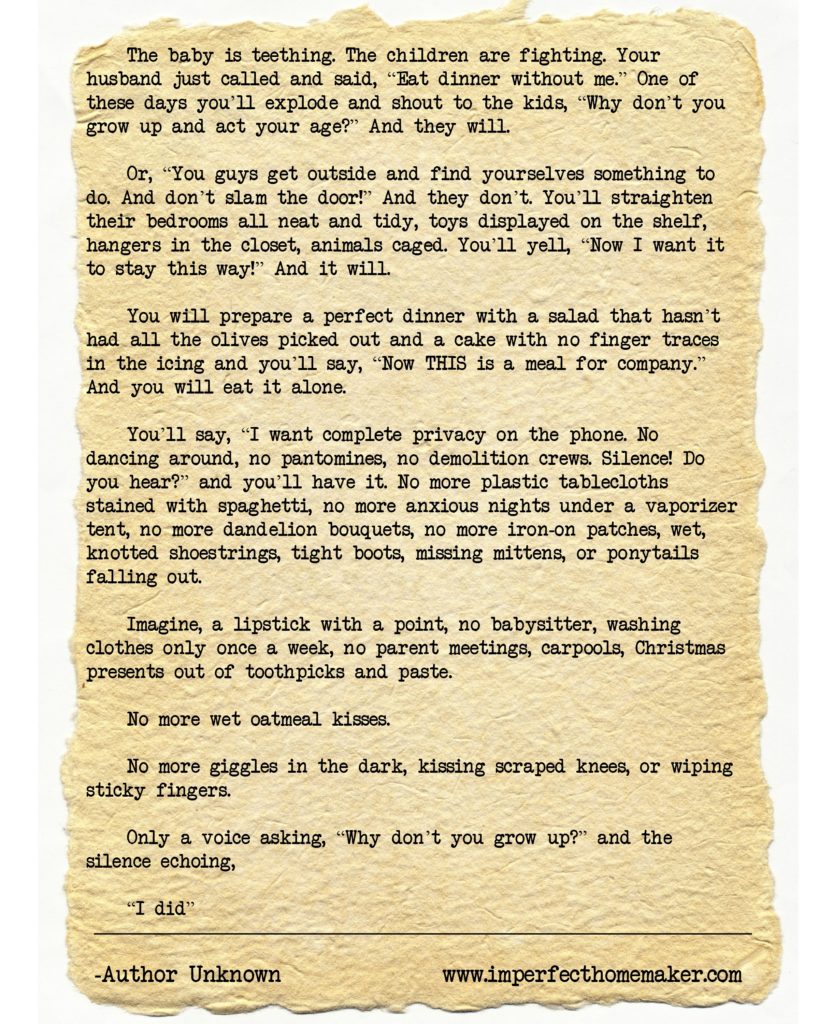 The baby is teething. The children are fighting. Your
husband just called and said, “Eat dinner without me.” One of
these days you’ll explode and shout to the kids, “Why don’t you
grow up and act your age?” And they will.
Or, “You guys get outside and find yourselves something to
do. And don’t slam the door!” And they don’t. You’ll straighten
their bedrooms all neat and tidy, toys displayed on the shelf,
hangers in the closet, animals caged. You’ll yell, “Now I want it
to stay this way!” And it will.
You will prepare a perfect dinner with a salad that hasn’t
had all the olives picked out and a cake with no finger traces
in the icing and you’ll say, “Now THIS is a meal for company.”
And you will eat it alone.
You’ll say, “I want complete privacy on the phone. No
dancing around, no pantomines, no demolition crews. Silence! Do
you hear?” and you’ll have it. No more plastic tablecloths
stained with spaghetti, no more anxious nights under a vaporizer
tent, no more dandelion bouquets, no more iron-on patches, wet,
knotted shoestrings, tight boots, missing mittens, or ponytails
falling out.
Imagine, a lipstick with a point, no babysitter, washing
clothes only once a week, no parent meetings, carpools, Christmas
presents out of toothpicks and paste.
No more wet oatmeal kisses.
No more giggles in the dark, kissing scraped knees, or wiping
sticky fingers.
Only a voice asking, “Why don’t you grow up?” and the
silence echoing,
“I did”
-Author Unknown
www.imperfecthomemaker.com